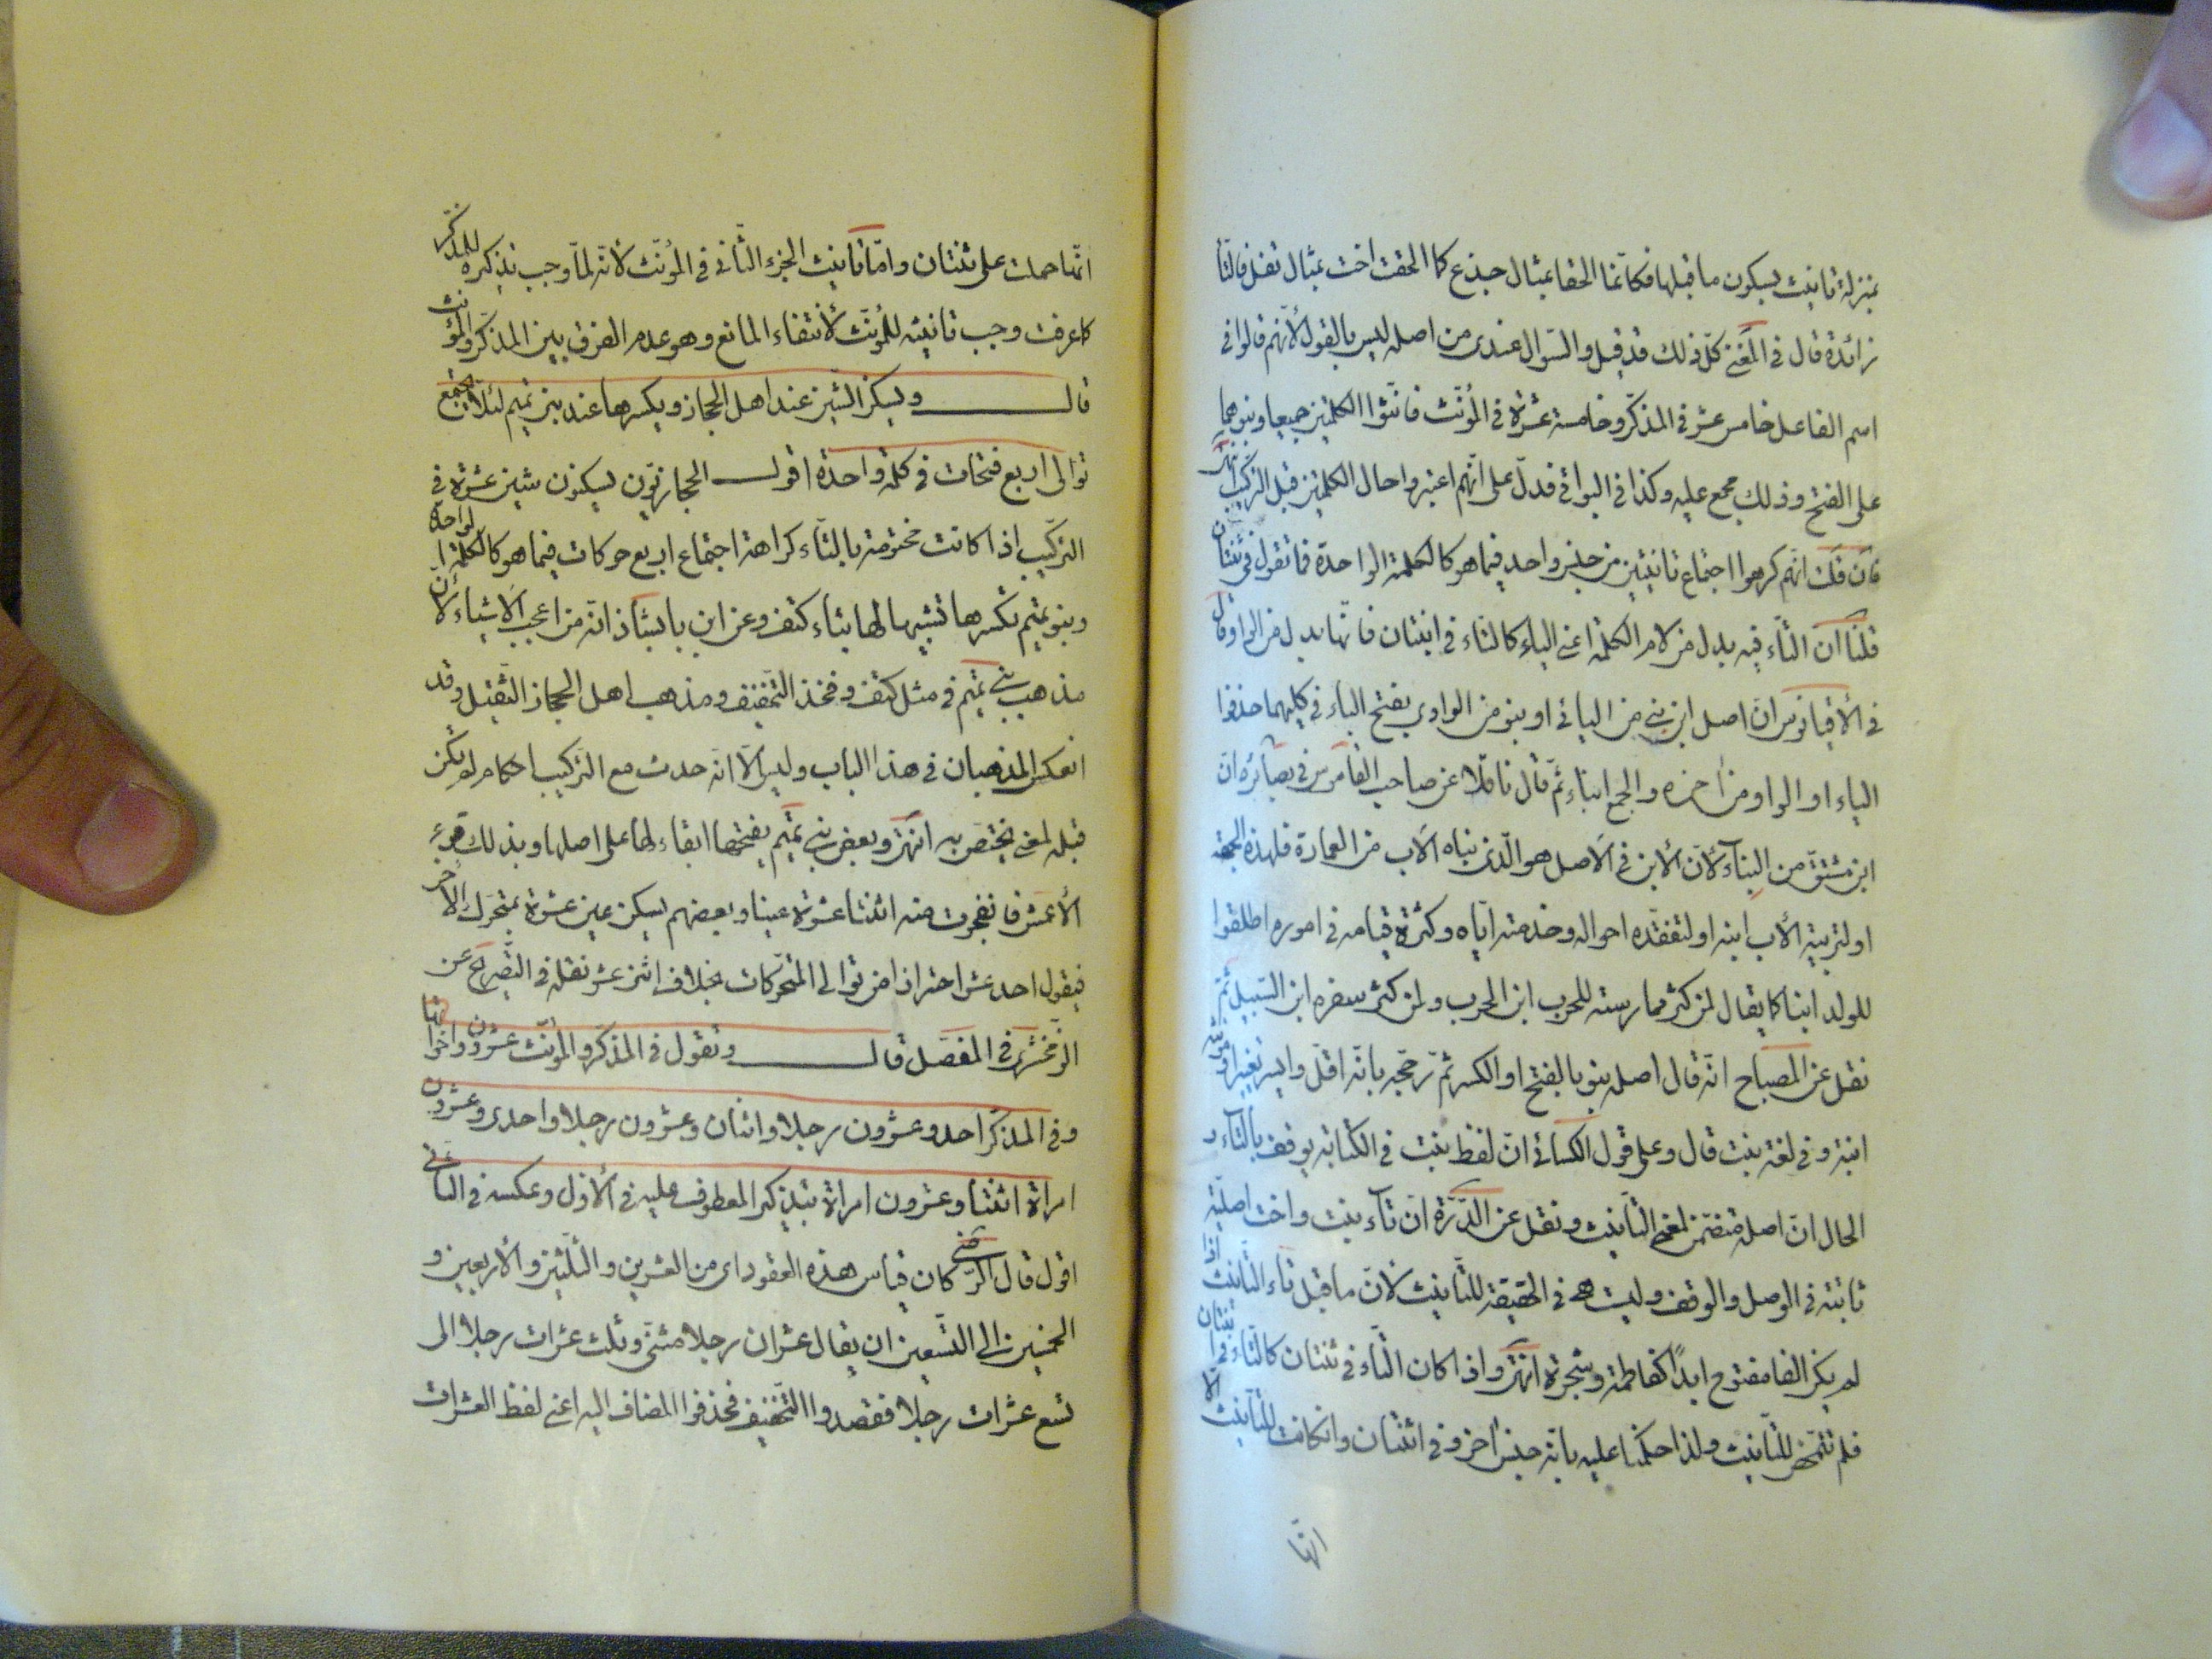 بمنزلة تانيث لسكون ما قبلها فكانما الحقا بمثال جذع كما الحقت اخت بمثال نفل فالتا
زائدة قال في المغني كل ذلك قد قيل والسؤال عندي من اصله ليس بالقول لانهم قالوا في
اسم الفاعل خامس عشر في المذكر وخامسة عشرة في المؤنث فانثوا الكلمتين جميعا وبنوهما
على الفتح وذلك مجمع عليه وكذا في البواقي فدل على انهم اعتبروا حال الكلمتين قبل التركيب انتهى
فان قلت انهم كرهوا اجتماع تانيثين من جنس واحد فيما هو كالكلمة الواحدة فما تقول في ثنتان
قلنا ان التاء فيه بدل من لام الكلمة اعني الياء كالتاء في ابنتان فانها بدل من الواو قال
في الأقيانوس ان اصل ابن بني من اليائي او بنو من الواوي بفتح الباء في كليهما حذفوا
الياء او الواو من آخره والجمع ابناء ثم قال ناقلا عن صاحب القاموس في بصائره ان
ابن مشتق من البناء لأن الأبن في الاصل هو الذي بناه الاب من العمارة فلهذه الجهة
او لتربية الأب ابنه او لتفقده احواله وخدمته اياه وكثرة قيامه في اموره اطلقوا
للولد ابنا كما يقال لمن كثر ممارسته للحرب ابن الحرب ولمن كثر سفره ابن السبيل ثم
نقل عن المصباح انه قال اصله بنو بالفتح او الكسر ثم رجحه بانه اقل وايسر تغييرا ومؤنثه
ابنة وفي لغة بنت قال وعلى قول الكسائي ان لفظ بنت في الكتابة يوقف بالتاء و
الحال ان اصله متضمن لمعنى التانيث ونقل عن الدرة ان تاء بنت واخت اصلية
ثابتة في الوصل والوقف وليست هي في الحقيقة للتانيث لان ما قبل تاء التانيث اذا
لم يكن الفا مفتوح ابدا كفاطمة وشجرة انتهى واذا كان التاء في ثنتان كالتاء في ابنتان
فلم تتمحض للتانيث ولذا حكمنا عليه بانه جنس آخر وفي اثنتان وان كانت للتانيث الا
انها
انها حملت على ثنتان واما تانيث الجزء الثاني في المؤنث لانه لما وجب تذكيره للمذكر
كما عرفت وجب تانيثه للمؤنث لأنتفاء المانع وهو عدم الفرق بين المذكر والمؤنث
قال ويسكن الشين عند اهل الحجاز ويكسرها عند بني تميم لئلا يجتمع
توالى اربع فتحات في كلمة واحدة اقول الحجازيون يسكنون شين عشرة في
التركيب اذا كانت مختومة بالتاء كراهة اجتماع اربع حركات فيما هو كالكلمة الواحدة
وبنو تميم تكسرها تشبيها لها بتاء كتف وعن ابن بابشاذ انه من اعجب الاشياء لأن
مذهب بني تميم في مثل كتف وفخذ التخفيف ومذهب اهل الحجاز التثقيل وقد
انعكس المذهبان في هذا الباب وليس الا انه حدث مع التركيب احكام لم تكن
قبله لمعنى يختص به انتهى وبعض بني تميم يفتحها ابقاء لها على اصلها وبذلك قرئ
الأعمش فانفجرت منه اثنتا عشرة عينا وبعضهم يسكن عين عشرة بمتحرك الآخر
فيقول احد عشر احترازا من توالي المتحركات بخلاف اثنى عشر نقله في التصريح عن
الزمخشري في المفصل قال وتقول في المذكر والمؤنث عشرون واخواتها
وفي المذكر احد وعشرون رجلا واثنان وعشرون رجلا واحدى وعشرون
امراة اثنتا وعشرون امراة بتذكير المعطوف عليه في الأول وعكسه في الثاني
اقول قال الرضي كان قياس هذه العقود اى من العشرين والثلثين والأربعين و
الخمسين الى التسعين ان يقال عشران رجلا مثنى وثلث عشرات رجلا الى
تسع عشرات رجلا فقصدوا التخفيف فحذفوا المضاف اليه اعني لفظ العشرات